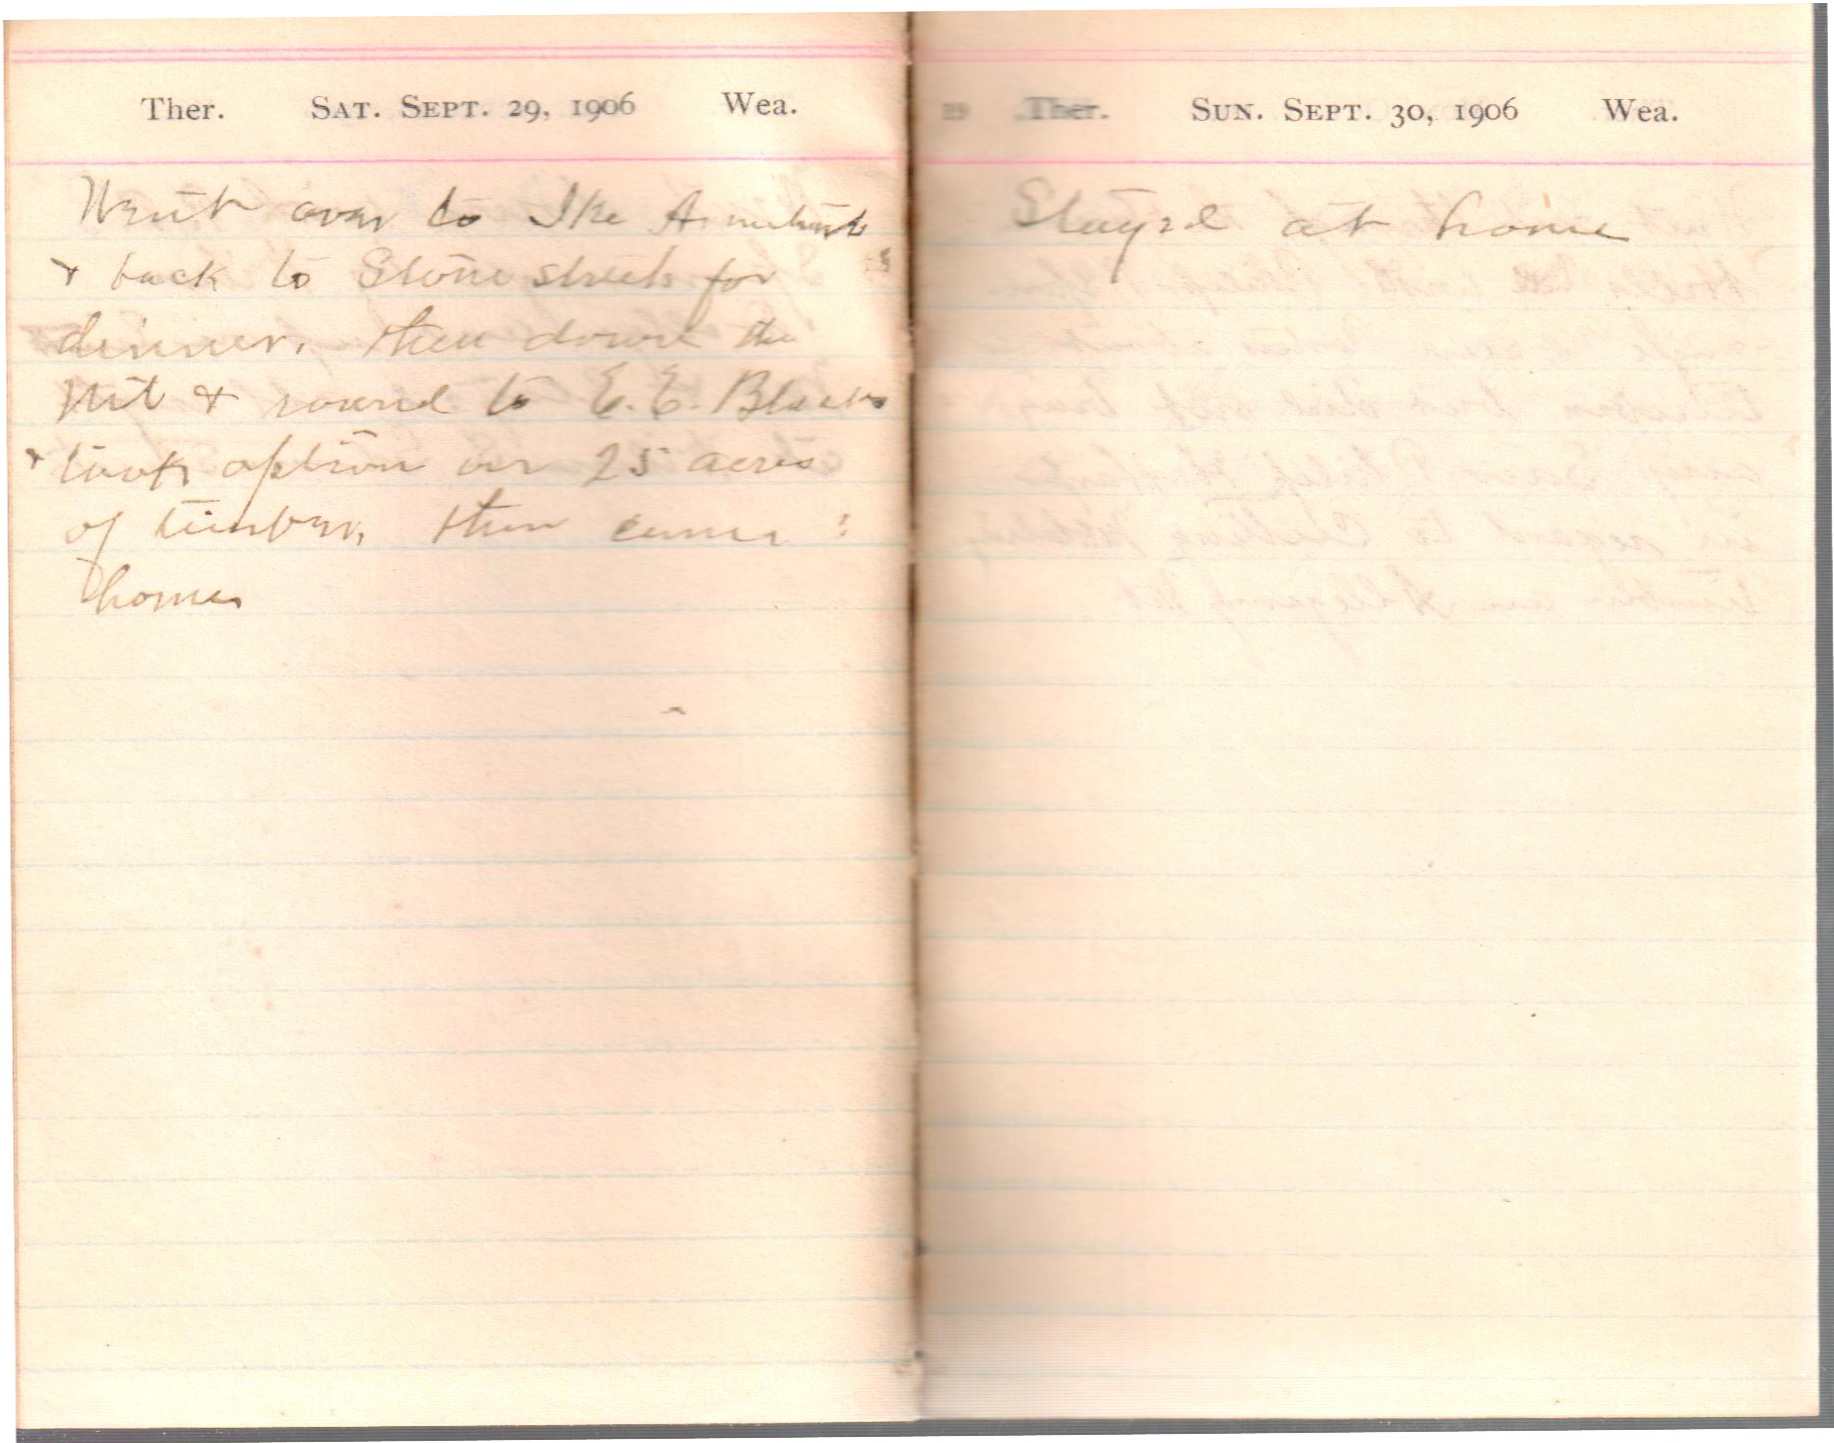 Ther. SAT. SEPT. 29, 1906 Wea.
Went over to Ike
& back to Stone streets for
dinner. then down the
& round to E. E. Blacks
& took option on 25 acres
of timber, then came
home
Ther. SUN. SEPT. 30, 1906 Wea.
Stayed at home